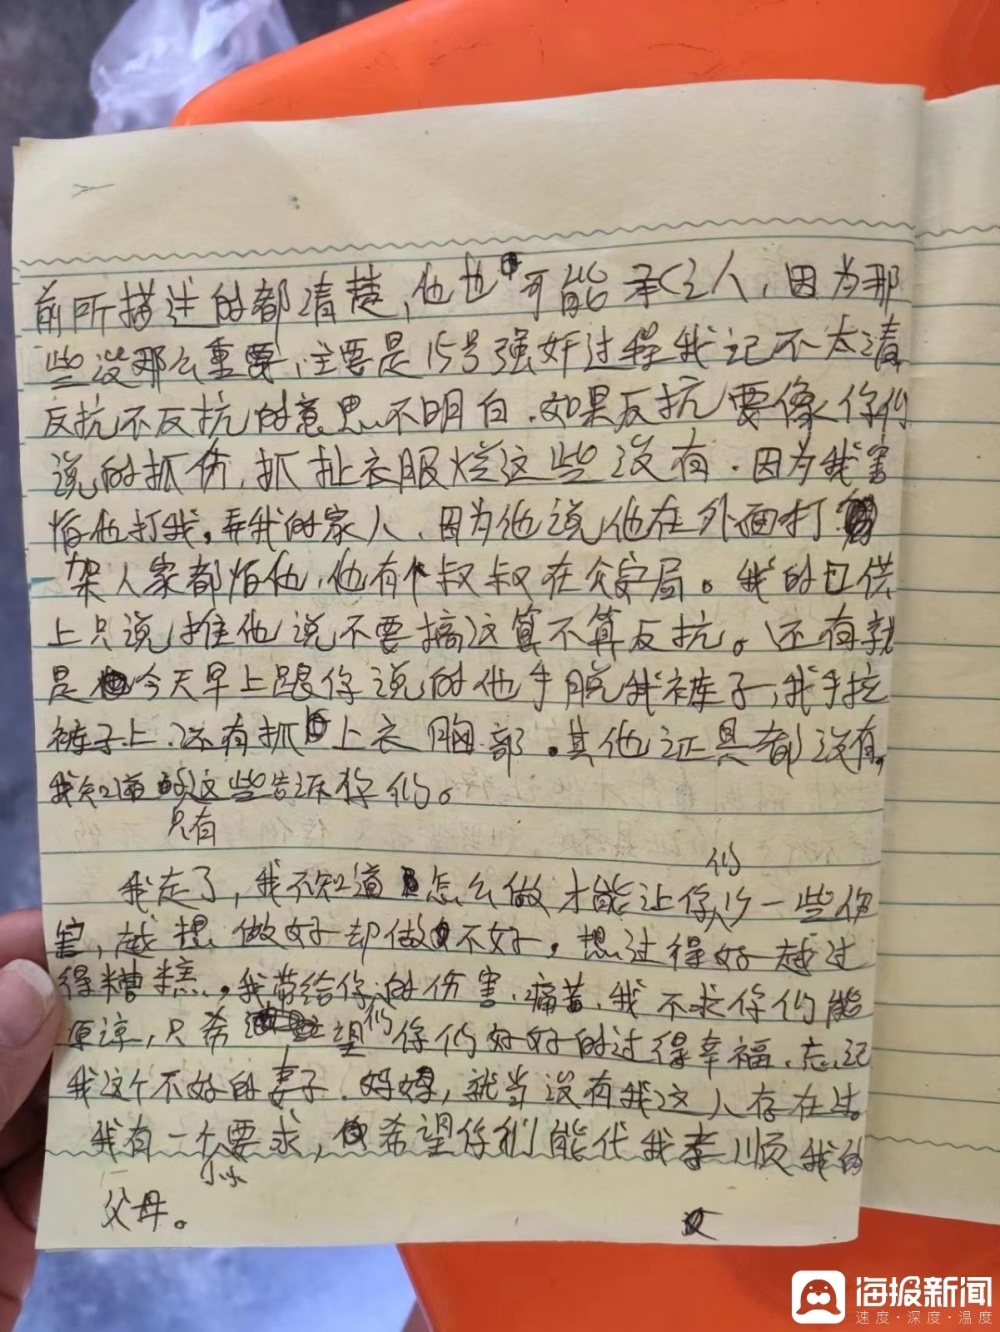 前所描述的都清楚，他也可能承认人，因为那
些没那么重要，主要是15号强奸过程我记不太清
反抗不反抗的意思不明白．如果反抗要像你们
说的抓伤，抓扯衣服烂这些没有．因为我害
怕他打我，弄我的家人，因为他说他在外面打
架人家都怕他，他有个叔叔在公安局。我的口供
上只说推他说不要搞这算不算反抗。还有就
是今天早上跟你说的他手脱我裤子，我手拉
裤子上．还有抓上衣胸部。其他证具都没有，
我知道的这些告诉你们。
只有
们
我走了，我不知道怎么做才能让你少一些伤
害，越想做好却做不好，想过得好越过
得糟糕。我带给你的伤害．痛苦．我不求你们能
原谅，只希望你们好好的过得幸福．忘记
们
我这个不好的妻子．妈妈，就当没有我这人存在过。
我有一个要求，希望你们能代我孝顺我的
小小
父母。
海报新闻
速度·深度·温度